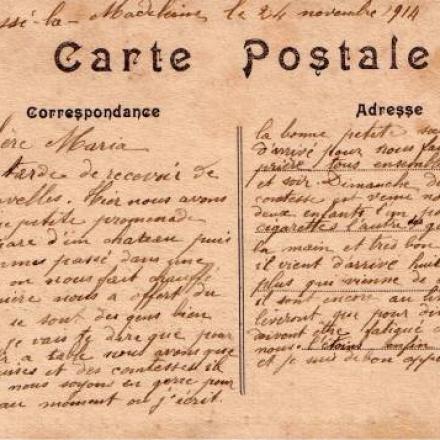 ssé-la-Madeleine le 24 novembre 1914
Carte Postale
Correspondance
ère Maria
tarde de recevoir de
velles. Hier nous avons
petite promenade
d'un chateau puis
mes passé dans une
on nous fait chauffé
nous a offert du
se sont des gens bien
Je vais te dire que pour
à table nous avons que
et des comtesses
nous soyons en gerre pour
au moment ou j'écrit.
Adresse
la bonne petite
d'arrivé pour nous
prière tous ensemb
et soir. Dimanche
comtesse est venue
deux enfants l'un
cigarettes l'autre
la main et très bon
il vient d'arrivé huit
plus qui vienne de
il sont encore au li
liveront que pour
doivent être fatigué
nous. enfin
et je suis de bon app